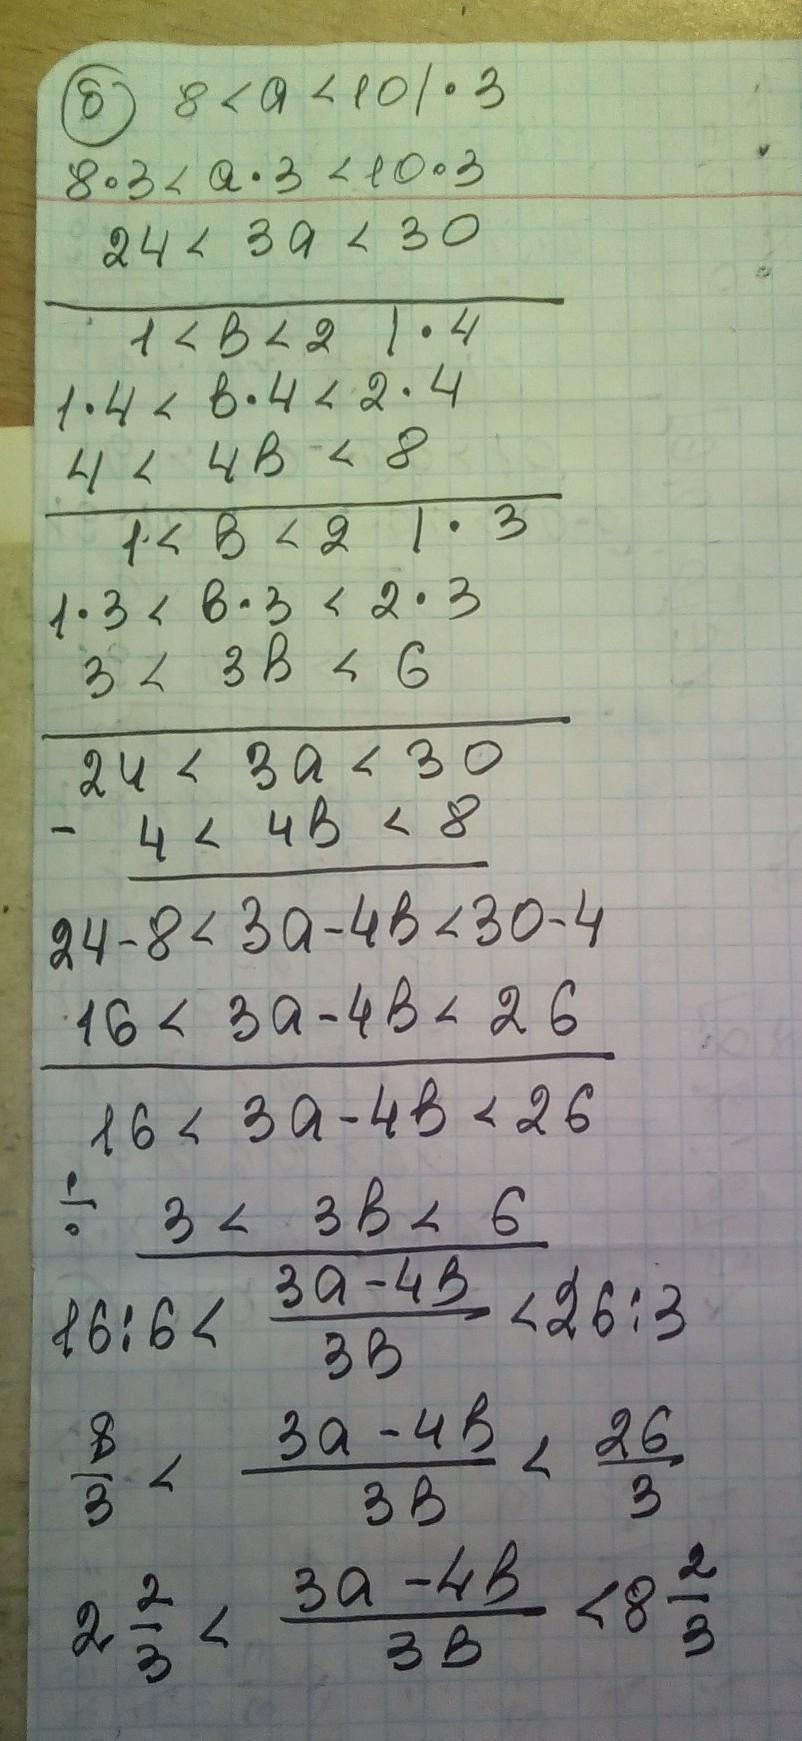 б) 8 < a < 10 | · 3
8·3 < a·3 < 10·3
24 < 3a < 30
1 < в < 2 | · 4
1·4 < в·4 < 2·4
4 < 4в < 8
1 < в < 2 | · 3
1·3 < в·3 < 2·3
3 < 3в < 6
24 < 3a < 30
- 4 < 4в < 8
24-8 < 3a-4в < 30-4
16 < 3a-4в < 26
16 < 3a-4в < 26
÷ 3 < 3в < 6
16:6 < (3a-4в)/(3в) < 26:3
8/3 < (3a-4в)/(3в) < 26/3
2 2/3 < (3a-4в)/(3в) < 8 2/3